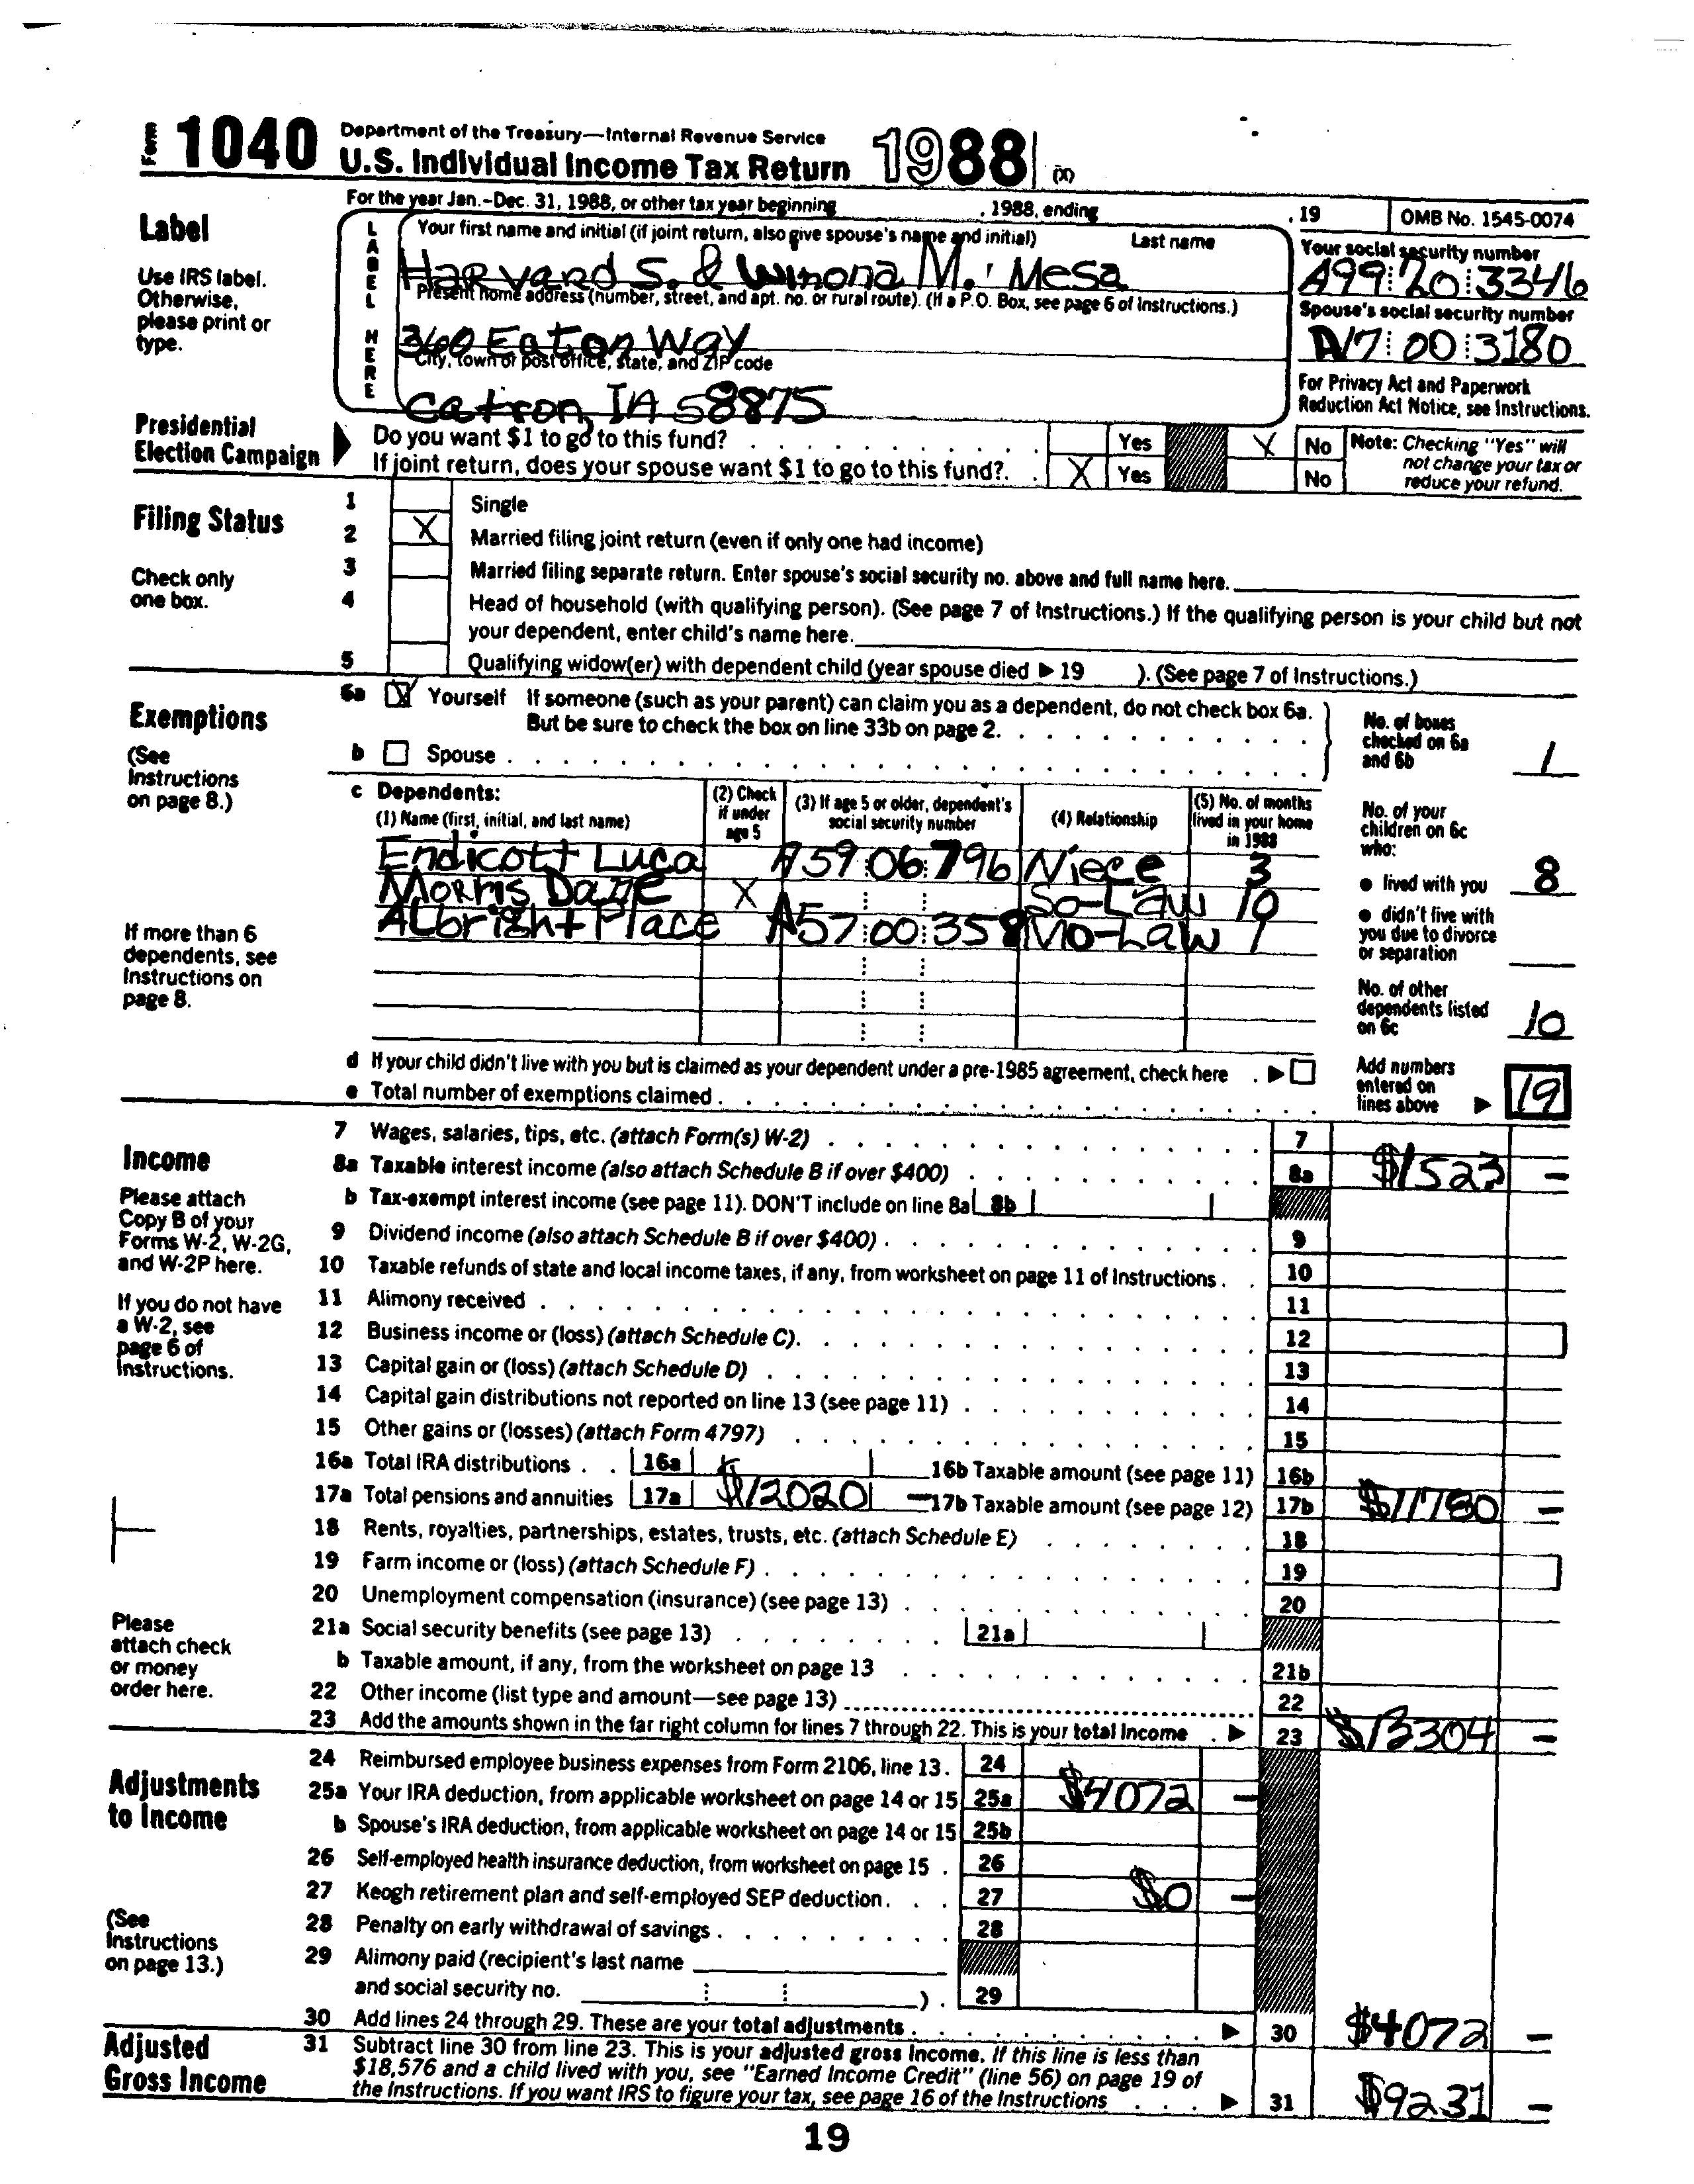 Form 1040 Department of the Treasury—Internal Revenue Service
U.S. Individual Income Tax Return 1988 (X)
For the year Jan.–Dec. 31, 1988, or other tax year beginning , 1988, ending , 19 OMB No. 1545-0074
Label
Use IRS label. Otherwise, please print or type.
LABEL HERE
Your first name and initial (if joint return, also give spouse's name and initial) Last name
Harvard S. & Winona M. Mesa
Your social security number
A99 20 3346
Present home address (number, street, and apt. no. or rural route). (If a P.O. Box, see page 6 of Instructions.)
360 Eaton Way
Spouse's social security number
A17 00 3180
City, town or post office, state, and ZIP code
Catron, IA 58875
For Privacy Act and Paperwork Reduction Act Notice, see Instructions.
Presidential Election Campaign
Do you want $1 to go to this fund? Yes X No
If joint return, does your spouse want $1 to go to this fund? X Yes No
Note: Checking "Yes" will not change your tax or reduce your refund.
Filing Status
Check only one box.
1 Single
2 X Married filing joint return (even if only one had income)
3 Married filing separate return. Enter spouse's social security no. above and full name here.
4 Head of household (with qualifying person). (See page 7 of Instructions.) If the qualifying person is your child but not
your dependent, enter child's name here.
5 Qualifying widow(er) with dependent child (year spouse died ▶ 19 ). (See page 7 of Instructions.)
Exemptions
(See Instructions on page 8.)
6a X Yourself If someone (such as your parent) can claim you as a dependent, do not check box 6a.
But be sure to check the box on line 33b on page 2.
b Spouse
No. of boxes checked on 6a and 6b 1
c Dependents:
(1) Name (first, initial, and last name) (2) Check if under age 5 (3) If age 5 or older, dependent's social security number (4) Relationship (5) No. of months lived in your home in 1988
Endicott Luca A59 06 796 Niece 3
Morris Dane X So-Law 10
Albright Place A57 00 358 Mo-Law 1
If more than 6 dependents, see Instructions on page 8.
No. of your children on 6c who:
● lived with you 8
● didn't live with you due to divorce or separation
No. of other dependents listed on 6c 10
d If your child didn't live with you but is claimed as your dependent under a pre-1985 agreement, check here ▶
e Total number of exemptions claimed
Add numbers entered on lines above ▶ 19
Income
Please attach Copy B of your Forms W-2, W-2G, and W-2P here.
If you do not have a W-2, see page 6 of Instructions.
Please attach check or money order here.
7 Wages, salaries, tips, etc. (attach Form(s) W-2) 7
8a Taxable interest income (also attach Schedule B if over $400) 8a $1523 –
b Tax-exempt interest income (see page 11). DON'T include on line 8a 8b
9 Dividend income (also attach Schedule B if over $400) 9
10 Taxable refunds of state and local income taxes, if any, from worksheet on page 11 of Instructions 10
11 Alimony received 11
12 Business income or (loss) (attach Schedule C) 12
13 Capital gain or (loss) (attach Schedule D) 13
14 Capital gain distributions not reported on line 13 (see page 11) 14
15 Other gains or (losses) (attach Form 4797) 15
16a Total IRA distributions 16a 16b Taxable amount (see page 11) 16b
17a Total pensions and annuities 17a $12020 – 17b Taxable amount (see page 12) 17b $11780 –
18 Rents, royalties, partnerships, estates, trusts, etc. (attach Schedule E) 18
19 Farm income or (loss) (attach Schedule F) 19
20 Unemployment compensation (insurance) (see page 13) 20
21a Social security benefits (see page 13) 21a
b Taxable amount, if any, from the worksheet on page 13 21b
22 Other income (list type and amount—see page 13) 22
23 Add the amounts shown in the far right column for lines 7 through 22. This is your total income ▶ 23 $13304 –
Adjustments to Income
(See Instructions on page 13.)
24 Reimbursed employee business expenses from Form 2106, line 13. 24
25a Your IRA deduction, from applicable worksheet on page 14 or 15 25a $4072 –
b Spouse's IRA deduction, from applicable worksheet on page 14 or 15 25b
26 Self-employed health insurance deduction, from worksheet on page 15 26
27 Keogh retirement plan and self-employed SEP deduction 27 $0 –
28 Penalty on early withdrawal of savings 28
29 Alimony paid (recipient's last name
and social security no. ) 29
30 Add lines 24 through 29. These are your total adjustments ▶ 30 $4072 –
Adjusted Gross Income
31 Subtract line 30 from line 23. This is your adjusted gross income. If this line is less than
$18,576 and a child lived with you, see "Earned Income Credit" (line 56) on page 19 of
the Instructions. If you want IRS to figure your tax, see page 16 of the Instructions ▶ 31 $9231 –
19